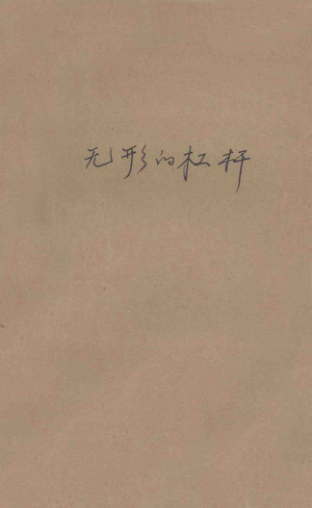 无形的杠杆